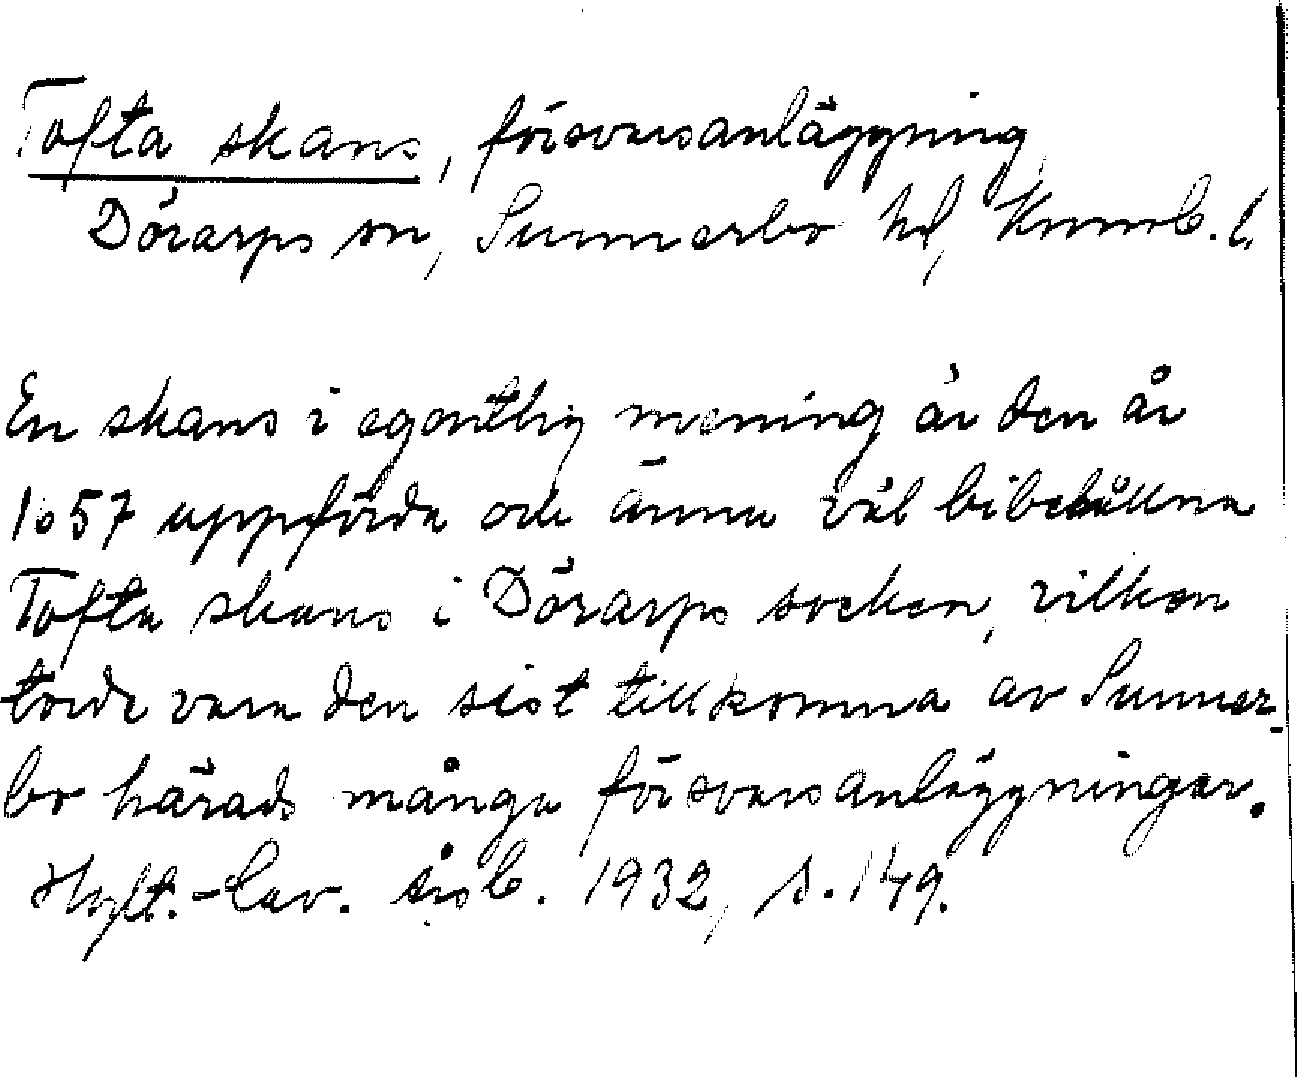 Tofta skans, försvarsanläggning
Dörarps sn, Sunnerbo hd, Kronob. l.
En skans i egentlig mening är den år
1657 uppförda och ännu väl bibehållna
Tofta skans i Dörarps socken, vilken
torde vara den sist tillkomna av Sunner-
bo härads många försvarsanläggningar.
Hylt.-Cav. årsb. 1932, s. 149.